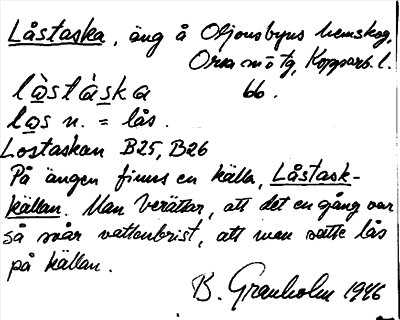 Låstaska, äng å Oljonsbyns hemskog,
Orsa m o tg, Kopparb. l.
làstàska 66.
las n. = lås.
Lostaskan B25, B26
På ängen finns en källa, Låstask-
källan. Man berättar, att det en gång var
så svår vattenbrist, att man satte lås
på källan.
B. Granholm 1946